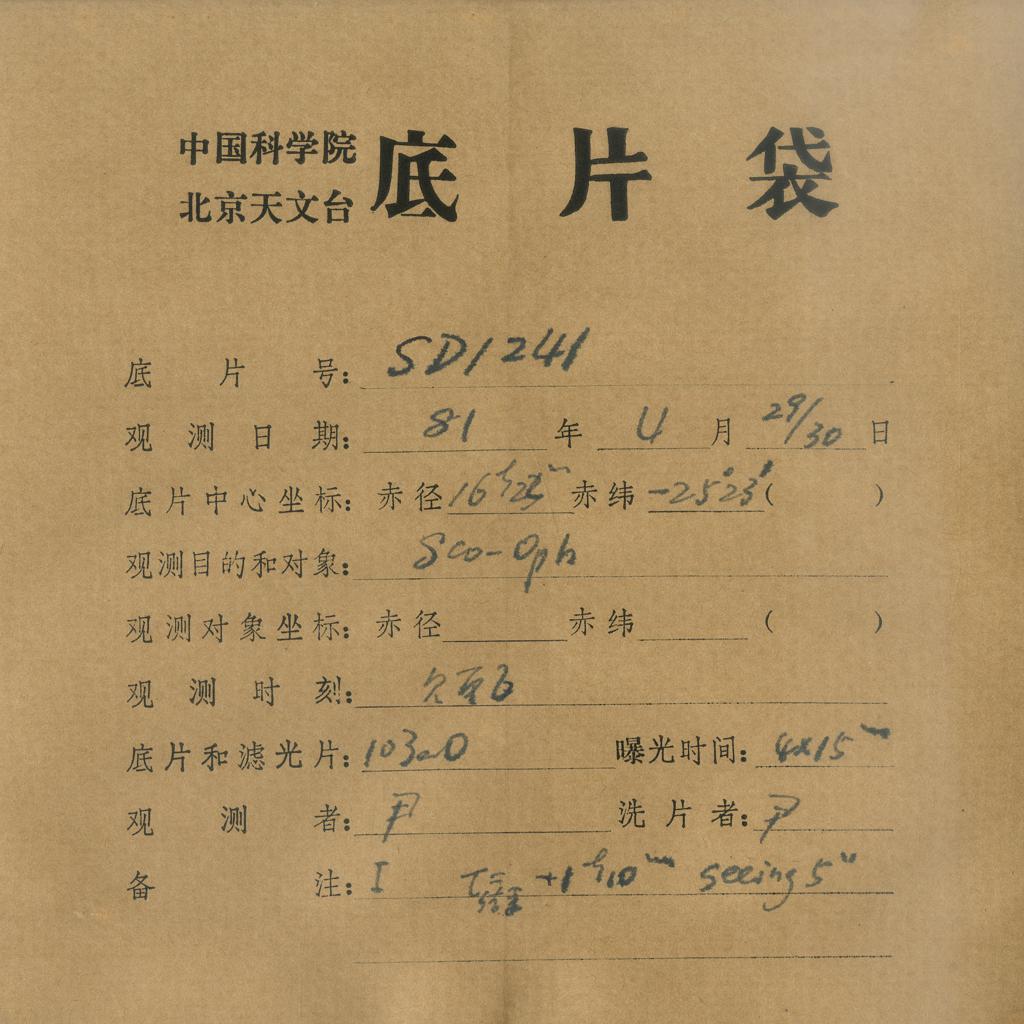 中国科学院
北京天文台
底片袋
底片号: SD1241
观测日期: 81 年 4 月 29/30 日
底片中心坐标: 赤径 16ʰ25ᵐ 赤纬 -25°23′ ( )
观测目的和对象: Sco-Oph
观测对象坐标: 赤径 赤纬 ( )
观测时刻:
底片和滤光片: 103aO 曝光时间: 4x15ᵐ
观测者: 尹 洗片者: 尹
备注: I +1ʰ10ᵐ seeing 5″